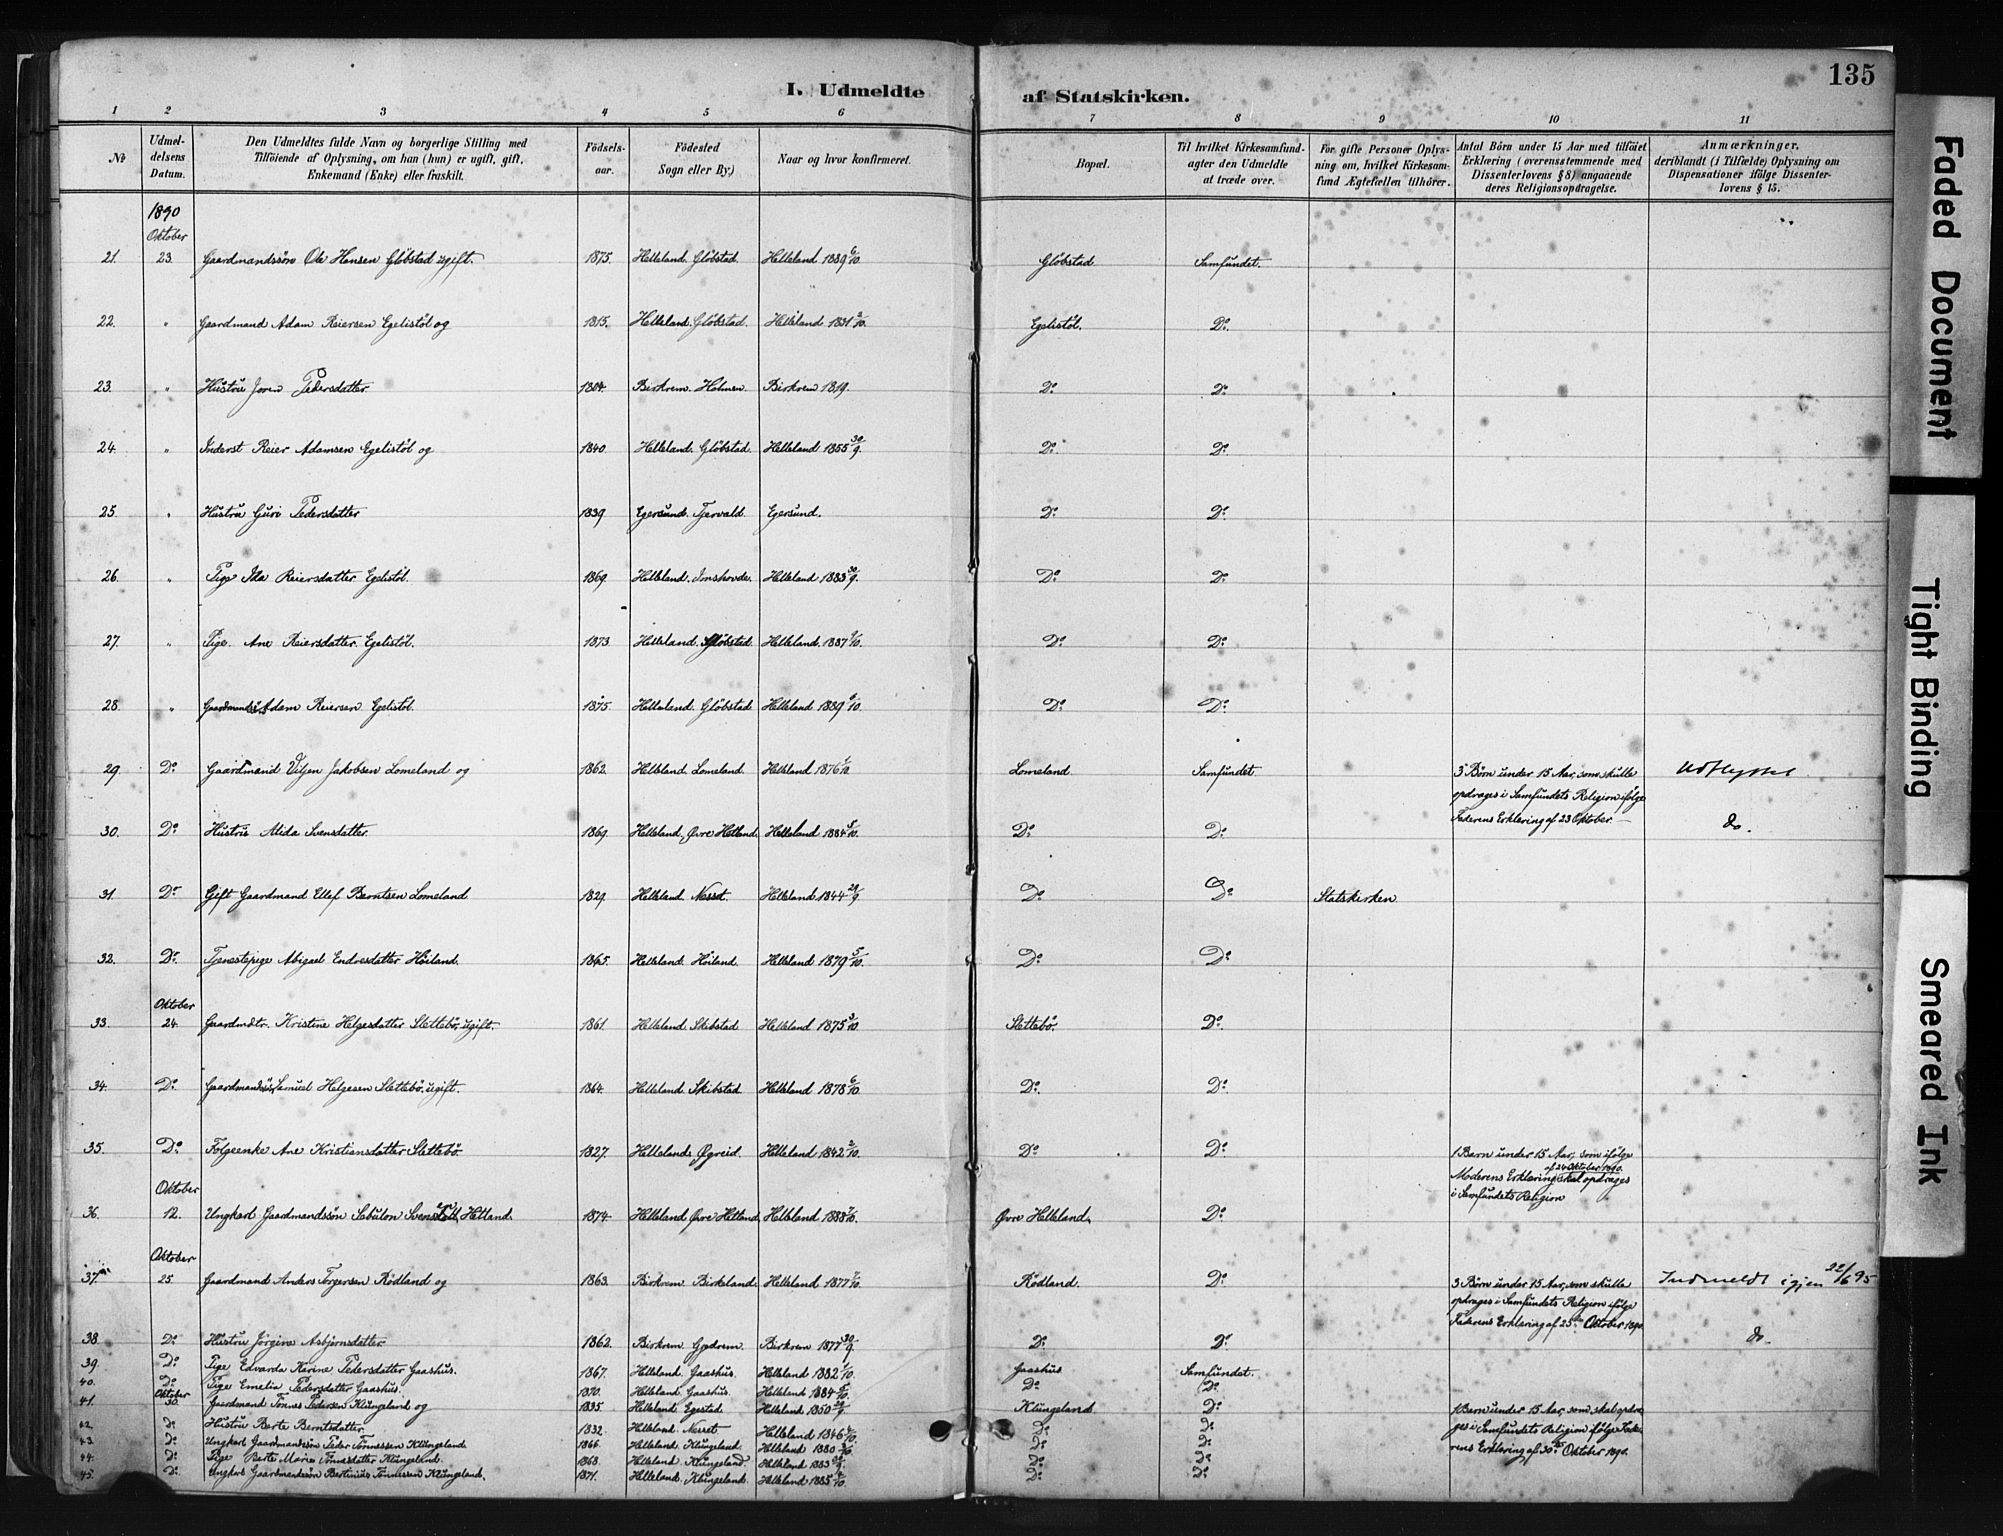 135
I. Udmeldte af Statskirken.
1 2 3 4 5 6 7 8 9 10 11
№
Udmel-
delsens
Datum.
Den Udmeldtes fulde Navn og borgerlige Stilling med
Tilföiende af Oplysning, om han (hun) er ugift, gift,
Enkemand (Enke) eller fraskilt.
Födsels-
aar.
Födested
Sogn eller By.)
Naar og hvor konfirmeret.
Bopæl.
Til hvilket Kirkesamfund-
agter den Udmeldte
at træde over.
For gifte Personer Oplys-
ning om, hvilket Kirkesam-
fund Ægtefællen tilhörer.
Antal Börn under 15 Aar med tilföiet
Erklæring (overensstemmende med
Dissenterlovens § 8) angaaende
deres Religionsopdragelse.
Anmærkninger.
deriblandt (i Tilfælde) Oplysning om
Dispensationer ifölge Dissenter-
lovens § 15.
1890
Oktober
21. 23. Gaardmandssön Ole Hansen Glöbstad ugift. 1875. Helleland Glöbstad. Helleland 1889 6/10. Glöbstad Samfundet.
22. " Gaardmand Adam Reiersen Egelistöl og 1815. Helleland. Glöbstad. Helleland 1831 2/10. Egelistöl. Do.
23. " Hustru Joren Pedersdatter 1804. Birkrem. Holmen. Birkrem 1819. Do Do
24. " Inderst Reier Adamsen Egelistöl og 1840. Helleland. Glöbstad. Helleland 1855 30/9. Do. Do.
25. " Hustru Guri Pedersdatter 1839 Egersund. Tjervald. Egersund. Do. Do.
26. " Pige Ida Reiersdatter Egelistöl. 1869. Helleland. Helleland 1883 30/9. Do Do
27. " Pige. Ane Reiersdatter Egelistöl. 1873. Helleland Glöbstad. Helleland 1887 /10. Do Do.
28. " Adam Reiersen Egelistöl. 1875. Helleland. Glöbstad Helleland 1889 6/10. Do. Do.
29. Do. Gaardmand Viljen Jakobsen Lomeland og 1862. Helleland Lomeland. Helleland 1876 1/10. Lomeland Samfundet 3 Börn under 15 Aar, som skulle Udflyttet
opdrages i Samfundets Religion ifölge
Faderens Erklæring af 23 Oktober. —
30. Do. Hustru Alida Svensdatter. 1869. Helleland, Övre Hetland. Helleland 1884 5/10. Do. Do. do.
31. Do Gift Gaardmand Ellef Berntsen Lomeland 1829. Helleland. Nesset. Helleland 1844 29/9. Do. Do. Statskirken
32. Do. Tjenestepige Abigael Endresdatter Höiland. 1865. Helleland. Höiland. Helleland 1879 5/10. Do. Do.
Oktober
33. 24. Gaardmdtr. Kristine Helgesdatter Slettebö, ugift. 1861. Helleland Skibstad Helleland 1875 3/10. Slettebö. Do.
34. Do. Gaardmandssön Samuel Helgesen Slettebö. ugift. 1864. Helleland Skibstad Helleland 1878 6/10. Do. Do.
35. Do. Folgeenke Ane Kristiansdatter Slettebö 1827. Helleland. Øgreid. Helleland 1842 2/10. Do Do. 1 Barn under 15 Aar, som ifölge
af 24 Oktober 1890.
Moderens Erklæring skal opdrages
i Samfundets Religion
Oktober
36. 12. Ungkarl Gaardmandssön Sebulon Hetland. 1874. Helleland Övre Hetland. Helleland 1888 7/10. Övre Helleland. Do.
Oktober
37. 25. Gaardmand Anders Torgersen Rödland og 1863. Birkrem Birkeland. Helleland 1877 7/10. Rödland. Do. 3 Börn under 15 Aar, som skulle Indmeldt igjen 22/6 95
opdrages i Samfundets Religion ifölge
Faderens Erklæring af 25de Oktober 1890.
38. Do. Hustru Jörgine Asbjörnsdatter. 1862. Birkrem Gydrem. Birkrem 1877 30/9. Do. Do. do.
39. Do Pige Edvarda Karine Pedersdatter Gaashus. 1867. Helleland. Gaashus. Helleland 1882 1/10. Gaashus Samfundet.
40. Do. Pige Emelia Pedersdatter Gaashus. 1870. Helleland Gaashus. Helleland 1884 5/10. Do Do.
Oktober
41. 30. Gaardmand Tönnes Pedersen Klungeland, og 1835. Helleland Egestad. Helleland 1850 29/9. Klungeland Do 1 Barn under 15 Aar, som skal opdra-
ges i Samfundets Religion ifölge Fade-
rens Erklæring af 30te Oktober 1890.
42. Do. Hustru Berte Berntsdatter. 1832. Helleland. Nesset Helleland 1846 4/10. Do. Do.
43. Do. Ungkarl Gaardmandssön Peder Tönnessen Klungeland 1866. Helleland. Klungeland. Helleland 1880 3/10. Do. Do.
44. Do. Pige Berte Marie Tönnesdatter Klungeland. 1868. Helleland. Klungeland. Helleland 1883 30/9. Do. Do.
45. Do. Ungkarl Gaardmandssön Bertinius Tönnessen Klungeland. 1871. Helleland. Klungeland. Helleland 1885 4/10. Do. Do.
Faded Document
Tight Binding
Smeared Ink